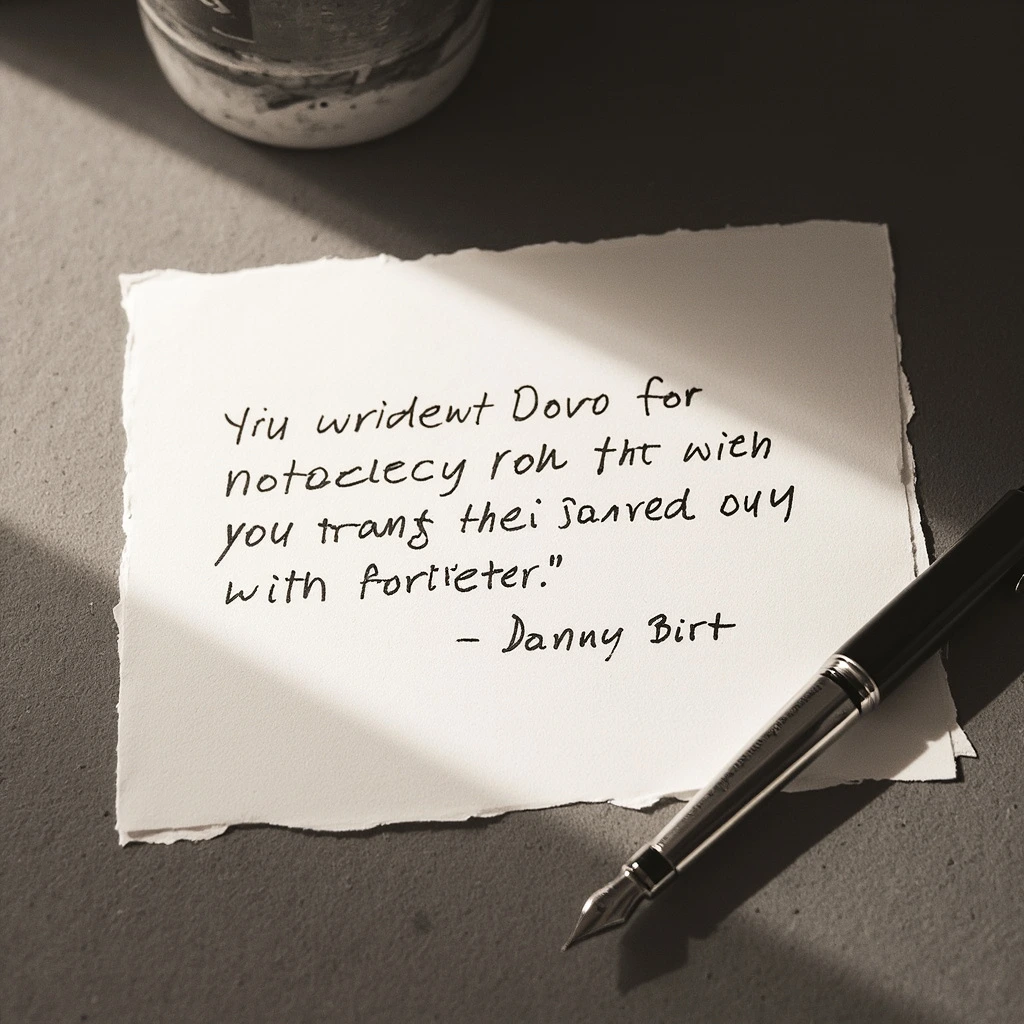 Yiu wrident Dovo for
notoclecy roh tht wieh
you trang thei sanred ouy
with fortieter."
- Danny Birt